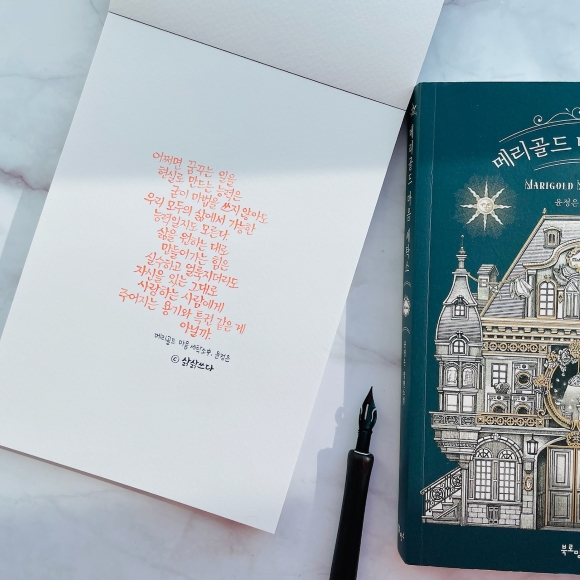 어쩌면 꿈꾸는 일을
현실로 만드는 능력은
굳이 마법을 쓰지 않아도
우리 모두의 삶에서 가능한
능력일지도 모른다.
삶을 원하는 대로
만들어가는 힘은
실수하고 얼룩지더라도
자신을 있는 그대로
사랑하는 사람에게
주어지는 용기와 특권 같은 게
아닐까.
메리골드 마음 세탁소中, 윤정은
ⓒ 삶삶쓰다
메리골드 마음 세탁소
메리골드
MARIGOLD
윤정은
북로망